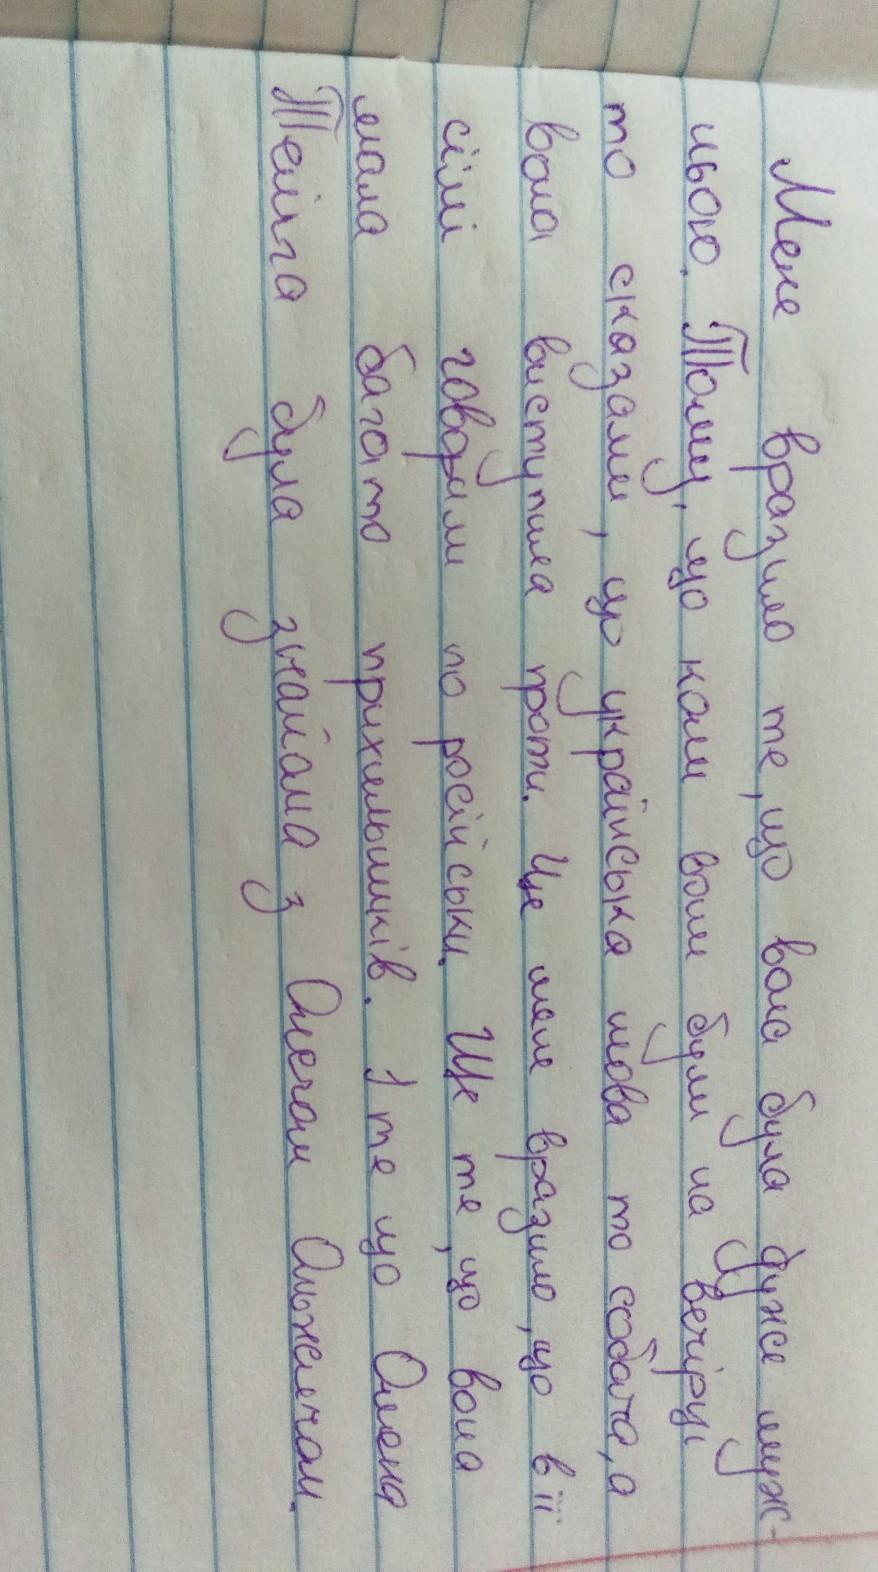 Мене вразило те, що вона була дуже муж-
ньою. Тому, що коли вони були на вечірці
то сказали, що українська мова то собача, а
вона виступила проти. Ще мене вразило, що в її
сімї говорили по російськи. Ще те, що вона
мала багато прихильників. І те що Олена
Теліга була знайома з Олегом Ольжичом.